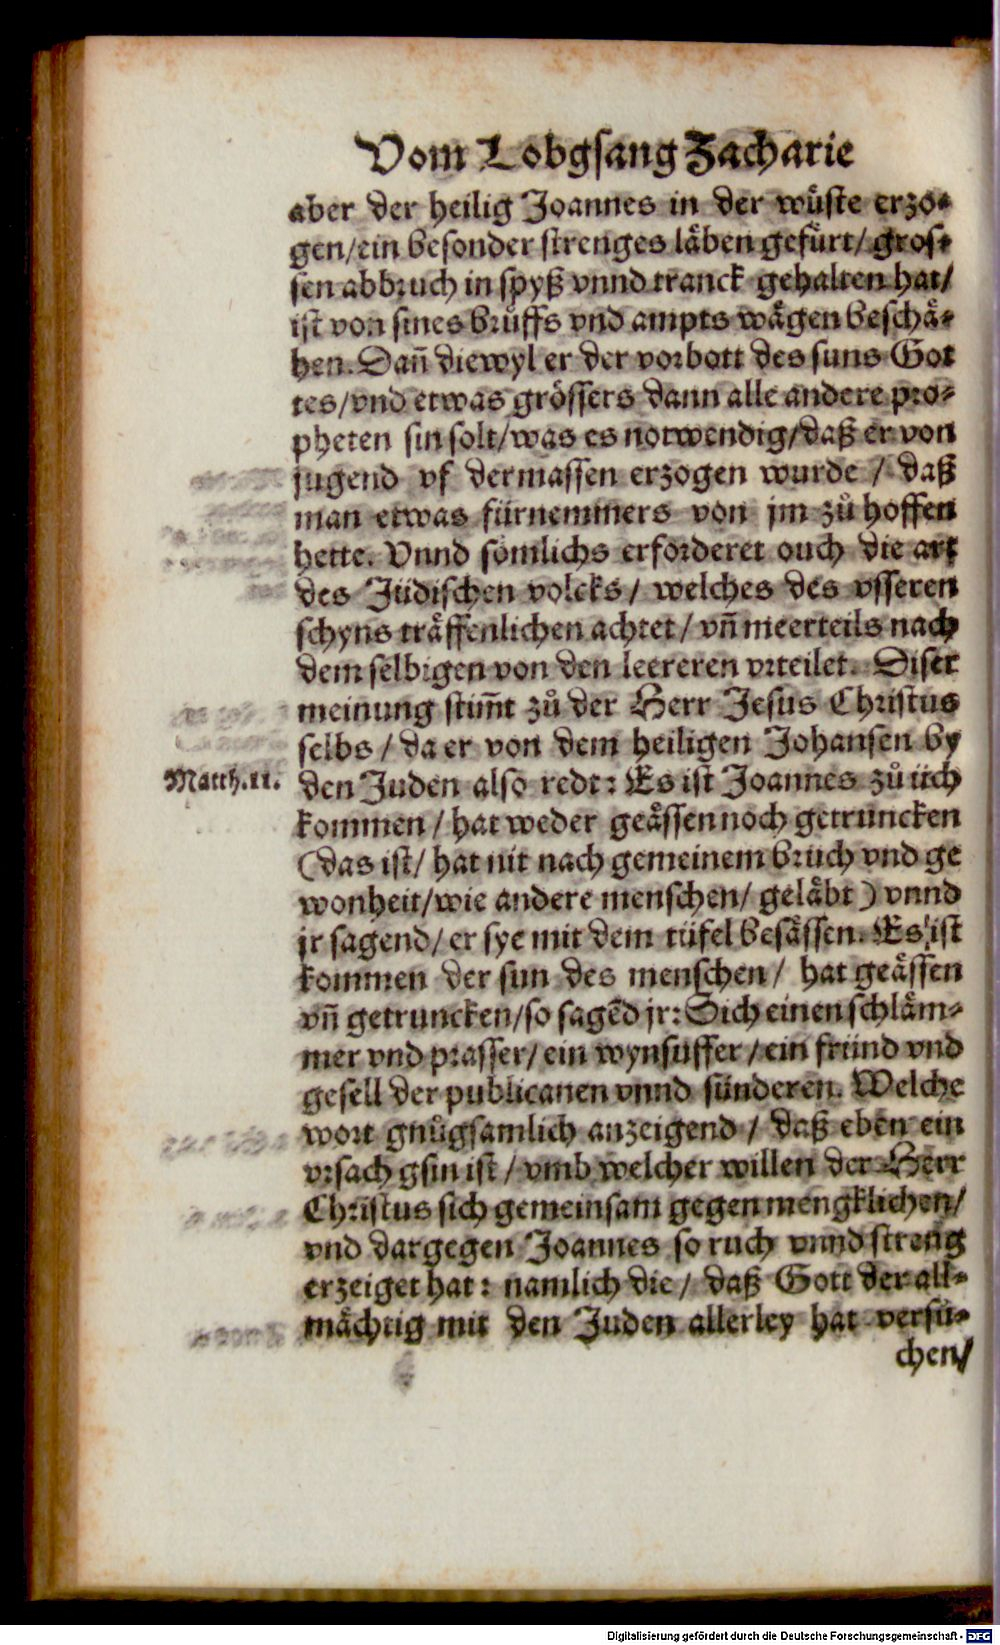 Vom Lobgsang Zacharie
aber der heilig Joannes in der wuͤste erzo⸗
gen/ein besonder strenges laͤben gefuͤrt/ gros⸗
sen abbruch in spyß vnnd tranck gehalten hat/
ist von sines bruͤffs vnd ampts waͤgen beschaͤ⸗
hen. Dañ diewyl er der vorbott des suns Got
tes/vnd etwas groͤssers dann alle andere pro⸗
pheten sin solt/was es notwendig/daß er von
jugend vf dermassen erzogen wurde / daß
man etwas fürnemmers von jm zů hoffen
hette. Vnnd soͤmlichs erforderet ouch die art
des Jüdischen volcks/ welches des vsseren
schyns traͤffenlichen achtet/ vñ meerteils nach
dem selbigen von den leereren vrteilet. Diser
meinung stim̃t zů der Herr Jesus Christus
selbs / da er von dem heiligen Johansen by
Matth.11. den Juden also redt: Es ist Joannes zů üch
kommen / hat weder geaͤssen noch getruncken
(das ist/ hat nit nach gemeinem bruch vnd ge
wonheit/wie andere menschen/ gelaͤbt) vnnd
jr sagend/ er sye mit dem tüfel besaͤssen. Es ist
kommen der sun des menschen/ hat geaͤssen
vñ getruncken/so sagẽd jr: Sich einen schlaͤm⸗
mer vnd prasser/ ein wynsuffer / ein fründ vnd
gesell der publicanen vnnd sünderen. Welche
wort gnuͤgsamlich anzeigend / daß eben ein
vrsach gsin ist / vmb welcher willen der Herr
Christus sich gemeinsam gegen mengklichen/
vnd dargegen Joannes so ruch vnnd streng
erzeiget hat: namlich die/ daß Gott der all⸗
maͤchtig mit den Juden allerley hat versuͦ⸗
chen/
Digitalisierung gefördert durch die Deutsche Forschungsgemeinschaft - DFG